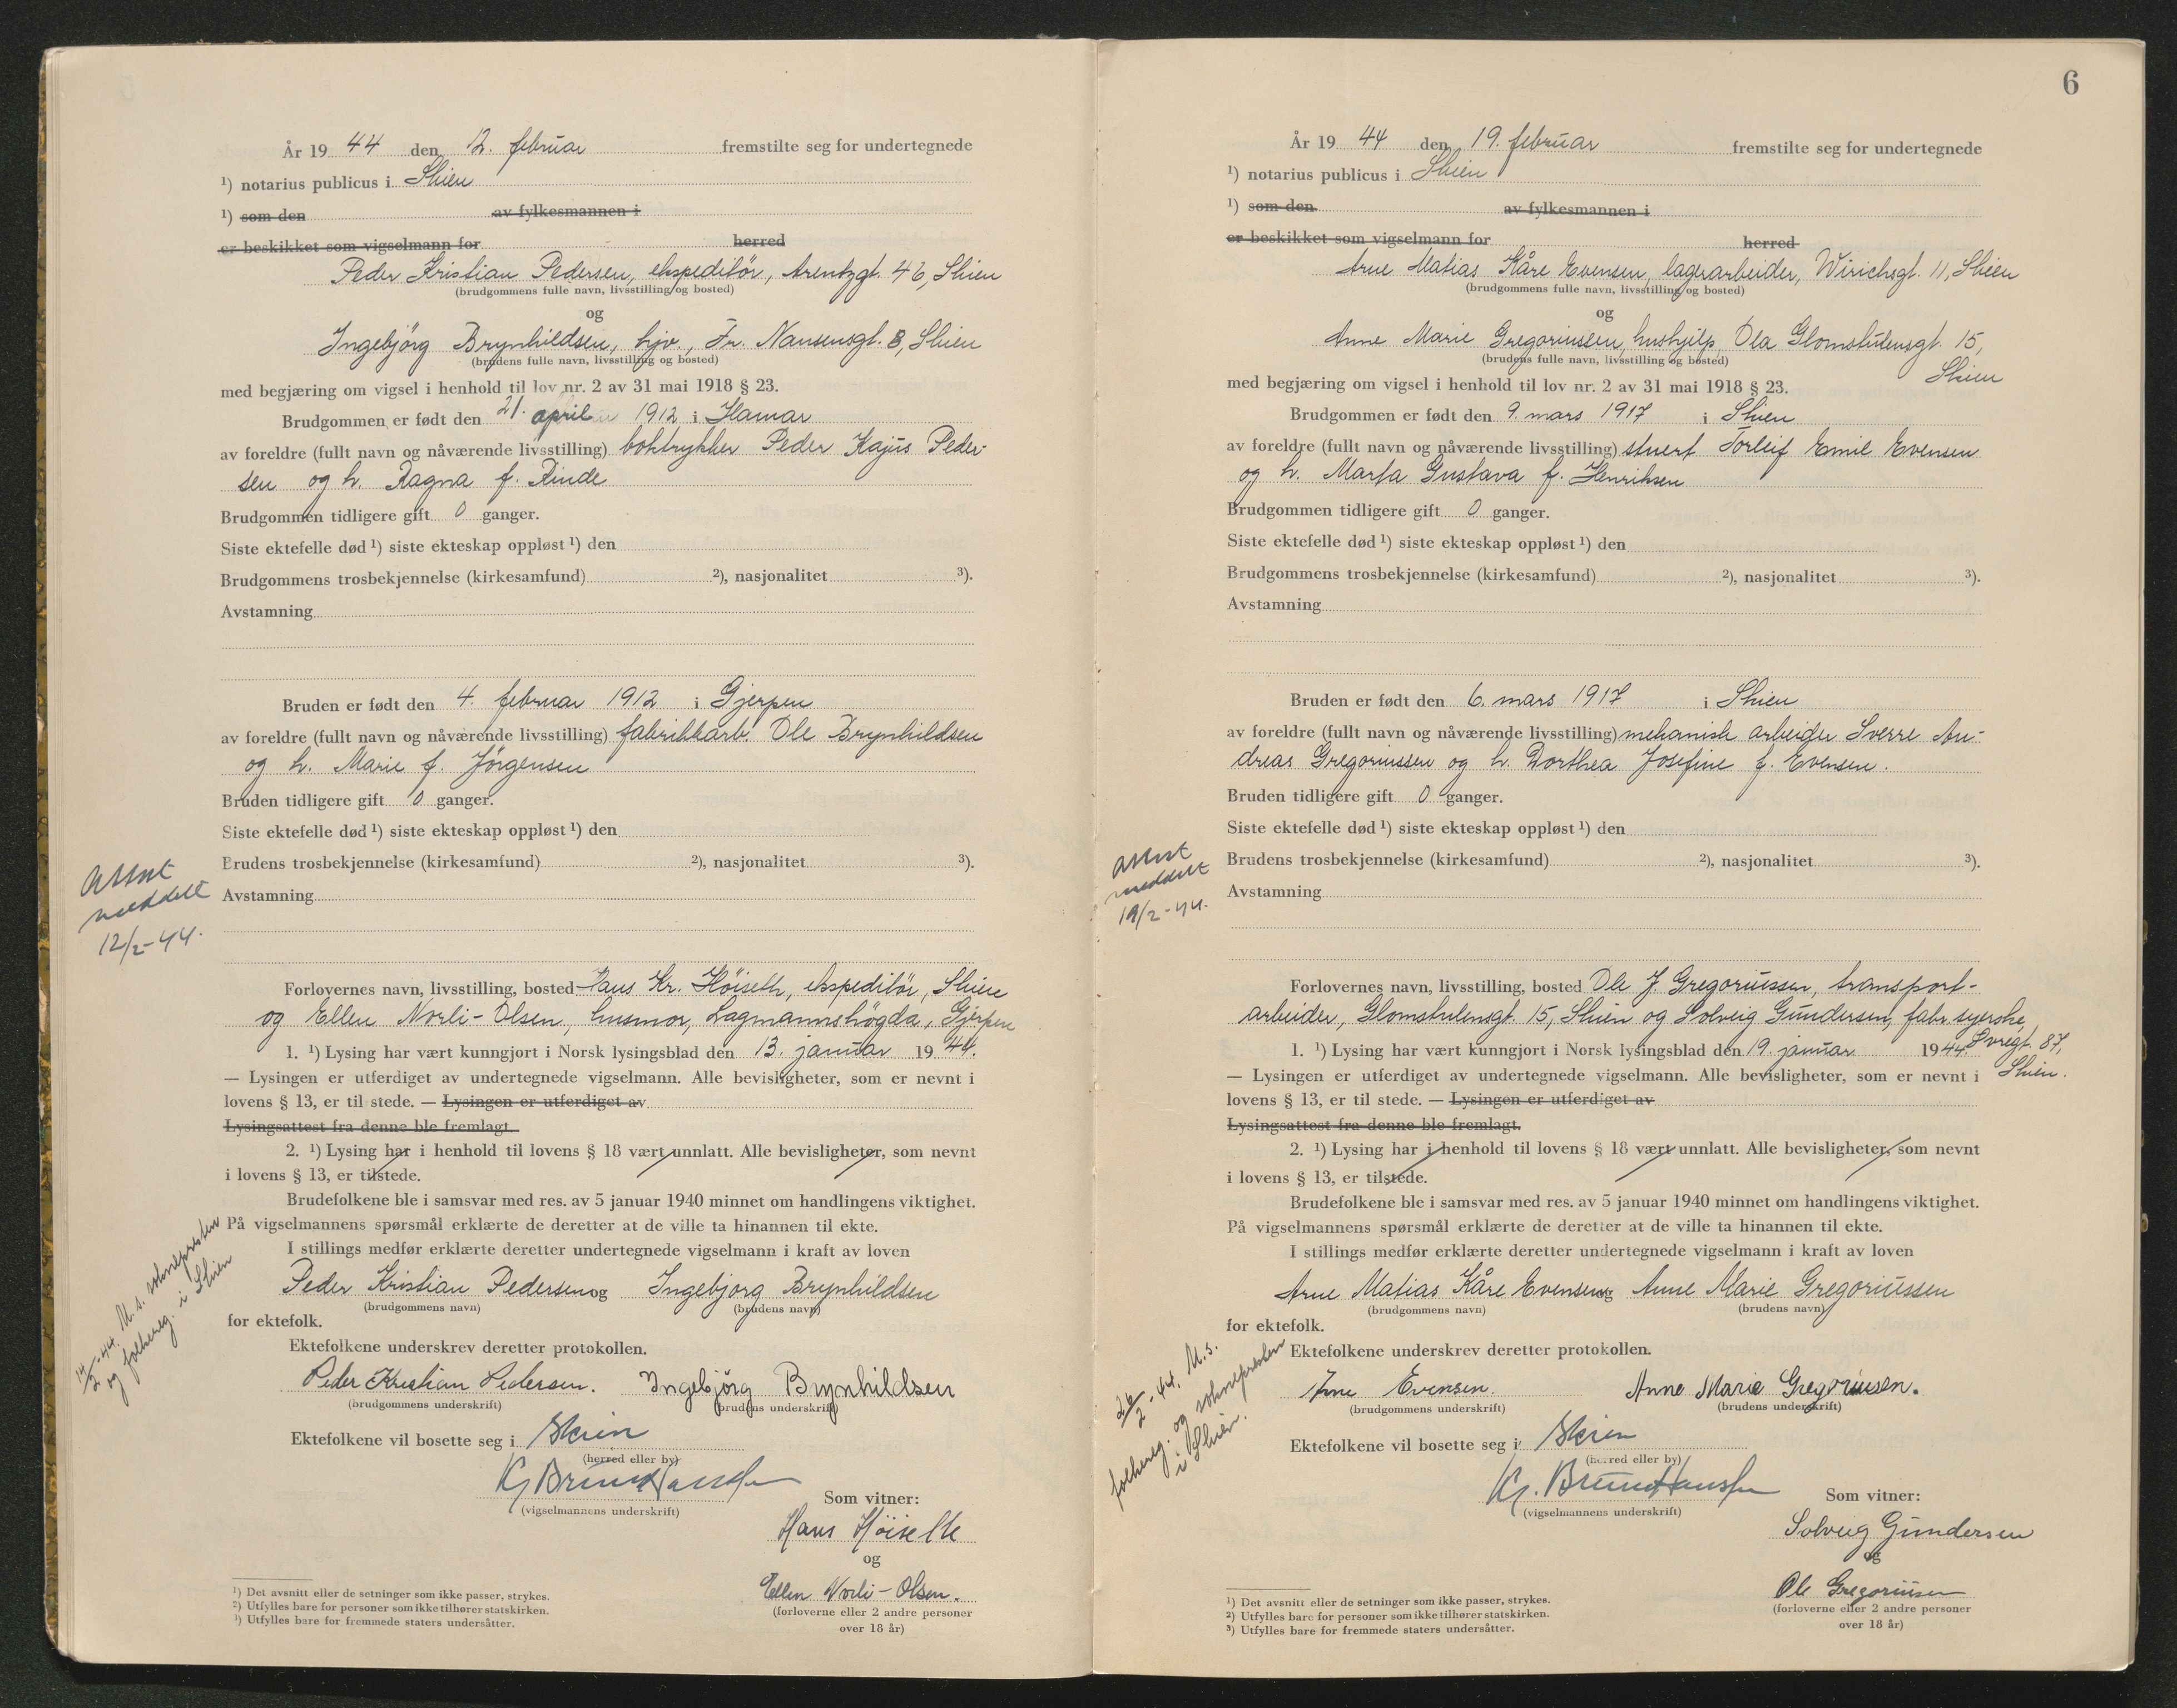 År 19 44 den 12. februar fremstilte seg for undertegnede
¹) notarius publicus i Skien
¹) som den av fylkesmannen i
er beskikket som vigselmann for herred
Peder Kristian Pedersen, ekspeditör, Arentzgt. 46, Skien
(brudgommens fulle navn, livsstilling og bosted)
og
Ingebjörg Brynhildsen, hjv., Fr. Nansensgt. 8, Skien
(brudens fulle navn, livsstilling og bosted)
med begjæring om vigsel i henhold til lov nr. 2 av 31 mai 1918 § 23.
Brudgommen er født den 21. april 1912 i Hamar
av foreldre (fullt navn og nåværende livsstilling) boktrykker Peder Kajus Peder-
sen og h. Ragna f. Rinde
Brudgommen tidligere gift 0 ganger.
Siste ektefelle død ¹) siste ekteskap oppløst ¹) den
Brudgommens trosbekjennelse (kirkesamfund) ²), nasjonalitet ³).
Avstamning
Bruden er født den 4. februar 1912 i Gjerpen
av foreldre (fullt navn og nåværende livsstilling) fabrikkarb. Ole Brynhildsen
og h. Marie f. Jörgensen
Bruden tidligere gift 0 ganger.
Siste ektefelle død ¹) siste ekteskap oppløst ¹) den
Brudens trosbekjennelse (kirkesamfund) ²), nasjonalitet ³).
Avstamning
Attest
meddelt
12/2-44.
Forlovernes navn, livsstilling, bosted Hans Kr. Höiseth, ekspeditör, Skien
og Ellen Norli-Olsen, husmor, Lagmannshögda, Gjerpen
1. ¹) Lysing har vært kunngjort i Norsk lysingsblad den 13. januar 19 44.
— Lysingen er utferdiget av undertegnede vigselmann. Alle bevisligheter, som er nevnt i
lovens § 13, er til stede. — Lysingen er utferdiget av
Lysingsattest fra denne ble fremlagt.
2. ¹) Lysing har i henhold til lovens § 18 vært unnlatt. Alle bevisligheter, som nevnt
i lovens § 13, er tilstede.
Brudefolkene ble i samsvar med res. av 5 januar 1940 minnet om handlingens viktighet.
På vigselmannens spørsmål erklærte de deretter at de ville ta hinannen til ekte.
I stillings medfør erklærte deretter undertegnede vigselmann i kraft av loven
Peder Kristian Pedersen og Ingebjørg Brynhildsen
(brudgommens navn) (brudens navn)
for ektefolk.
14/2-44. M.s. soknepresten
og folkereg. i Skien
Ektefolkene underskrev deretter protokollen.
Peder Kristian Pedersen. Ingebjörg Brynhildsen
(brudgommens underskrift) (brudens underskrift)
Ektefolkene vil bosette seg i Skien
(herred eller by)
(vigselmannens underskrift)
Som vitner:
Hans Höiseth
og
Ellen Norli-Olsen.
(forloverne eller 2 andre personer
over 18 år)
¹) Det avsnitt eller de setninger som ikke passer, strykes.
²) Utfylles bare for personer som ikke tilhører statskirken.
³) Utfylles bare for fremmede staters undersåtter.
6
År 19 44 den 19. februar fremstilte seg for undertegnede
¹) notarius publicus i Skien
¹) som den av fylkesmannen i
er beskikket som vigselmann for herred
Arne Matias Kåre Evensen, lagerarbeider, Wirichsgt. 11, Skien
(brudgommens fulle navn, livsstilling og bosted)
og
Anne Marie Gregoriussen, hushjelp, Ola Glomstulensgt. 15,
Skien
(brudens fulle navn, livsstilling og bosted)
med begjæring om vigsel i henhold til lov nr. 2 av 31 mai 1918 § 23.
Brudgommen er født den 9. mars 1917 i Skien
av foreldre (fullt navn og nåværende livsstilling) stuert Torleif Emil Evensen
og h. Marta Gustava f. Henriksen
Brudgommen tidligere gift 0 ganger.
Siste ektefelle død ¹) siste ekteskap oppløst ¹) den
Brudgommens trosbekjennelse (kirkesamfund) ²), nasjonalitet ³).
Avstamning
Bruden er født den 6. mars 1917 i Skien
av foreldre (fullt navn og nåværende livsstilling) mekanisk arbeider Sverre An-
dreas Gregoriussen og h. Dorthea Josefine f. Evensen.
Bruden tidligere gift 0 ganger.
Siste ektefelle død ¹) siste ekteskap oppløst ¹) den
Brudens trosbekjennelse (kirkesamfund) ²), nasjonalitet ³).
Avstamning
Attest
meddelt
19/2-44.
Forlovernes navn, livsstilling, bosted Ole J. Gregoriussen, transport-
arbeider, Glomstulensgt. 15, Skien og Solveig Gundersen, fabr. syerske,
Svregt. 87,
Skien.
1. ¹) Lysing har vært kunngjort i Norsk lysingsblad den 19. januar 19 44.
— Lysingen er utferdiget av undertegnede vigselmann. Alle bevisligheter, som er nevnt i
lovens § 13, er til stede. — Lysingen er utferdiget av
Lysingsattest fra denne ble fremlagt.
2. ¹) Lysing har i henhold til lovens § 18 vært unnlatt. Alle bevisligheter, som nevnt
i lovens § 13, er tilstede.
Brudefolkene ble i samsvar med res. av 5 januar 1940 minnet om handlingens viktighet.
På vigselmannens spørsmål erklærte de deretter at de ville ta hinannen til ekte.
I stillings medfør erklærte deretter undertegnede vigselmann i kraft av loven
Arne Matias Kåre Evensen og Anne Marie Gregoriussen
(brudgommens navn) (brudens navn)
for ektefolk.
26/2-44. M.s.
folkereg. og soknepresten
i Skien.
Ektefolkene underskrev deretter protokollen.
Arne Evensen. Anne Marie Gregoriusen.
(brudgommens underskrift) (brudens underskrift)
Ektefolkene vil bosette seg i Skien
(herred eller by)
(vigselmannens underskrift)
Som vitner:
Solveig Gundersen
og
Ole Gregoriusen
(forloverne eller 2 andre personer
over 18 år)
¹) Det avsnitt eller de setninger som ikke passer, strykes.
²) Utfylles bare for personer som ikke tilhører statskirken.
³) Utfylles bare for fremmede staters undersåtter.